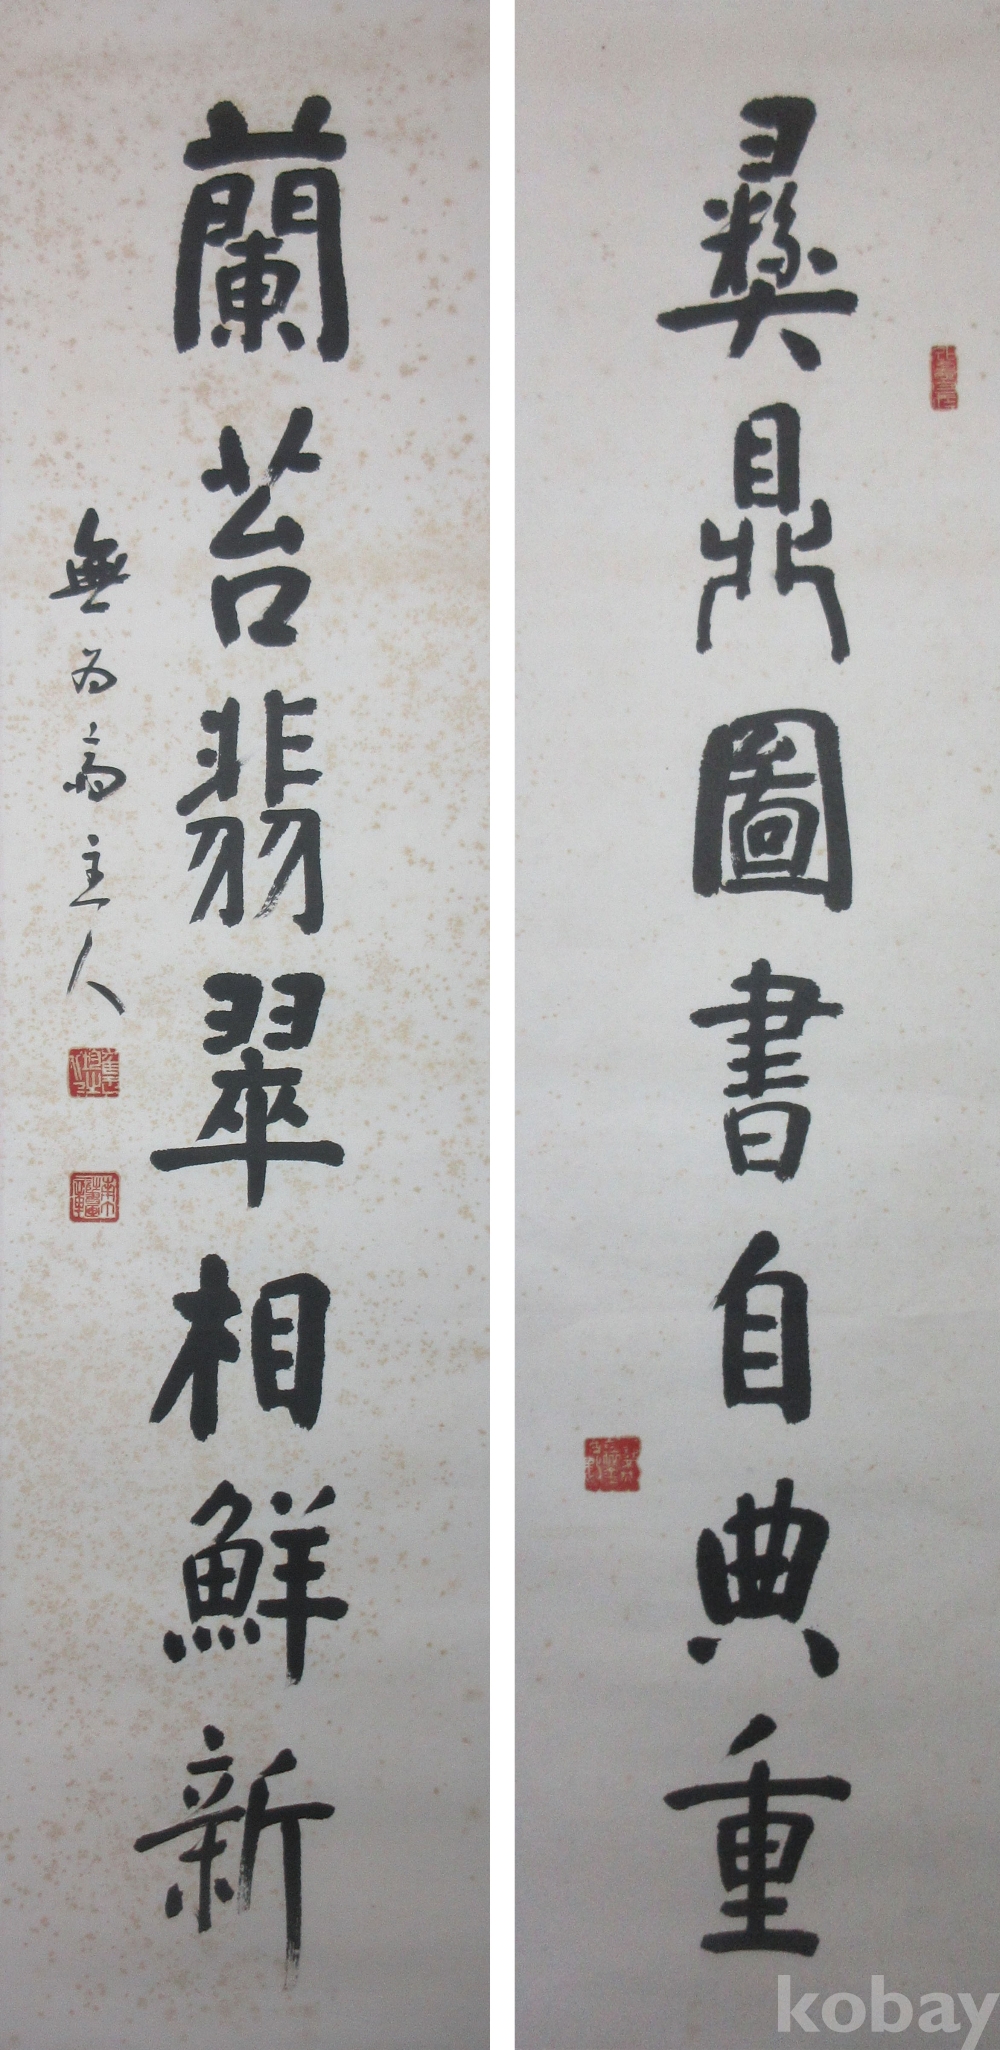 彝鼎圖書自典重
蘭苕翡翠相鮮新
無為齋主人
kobay